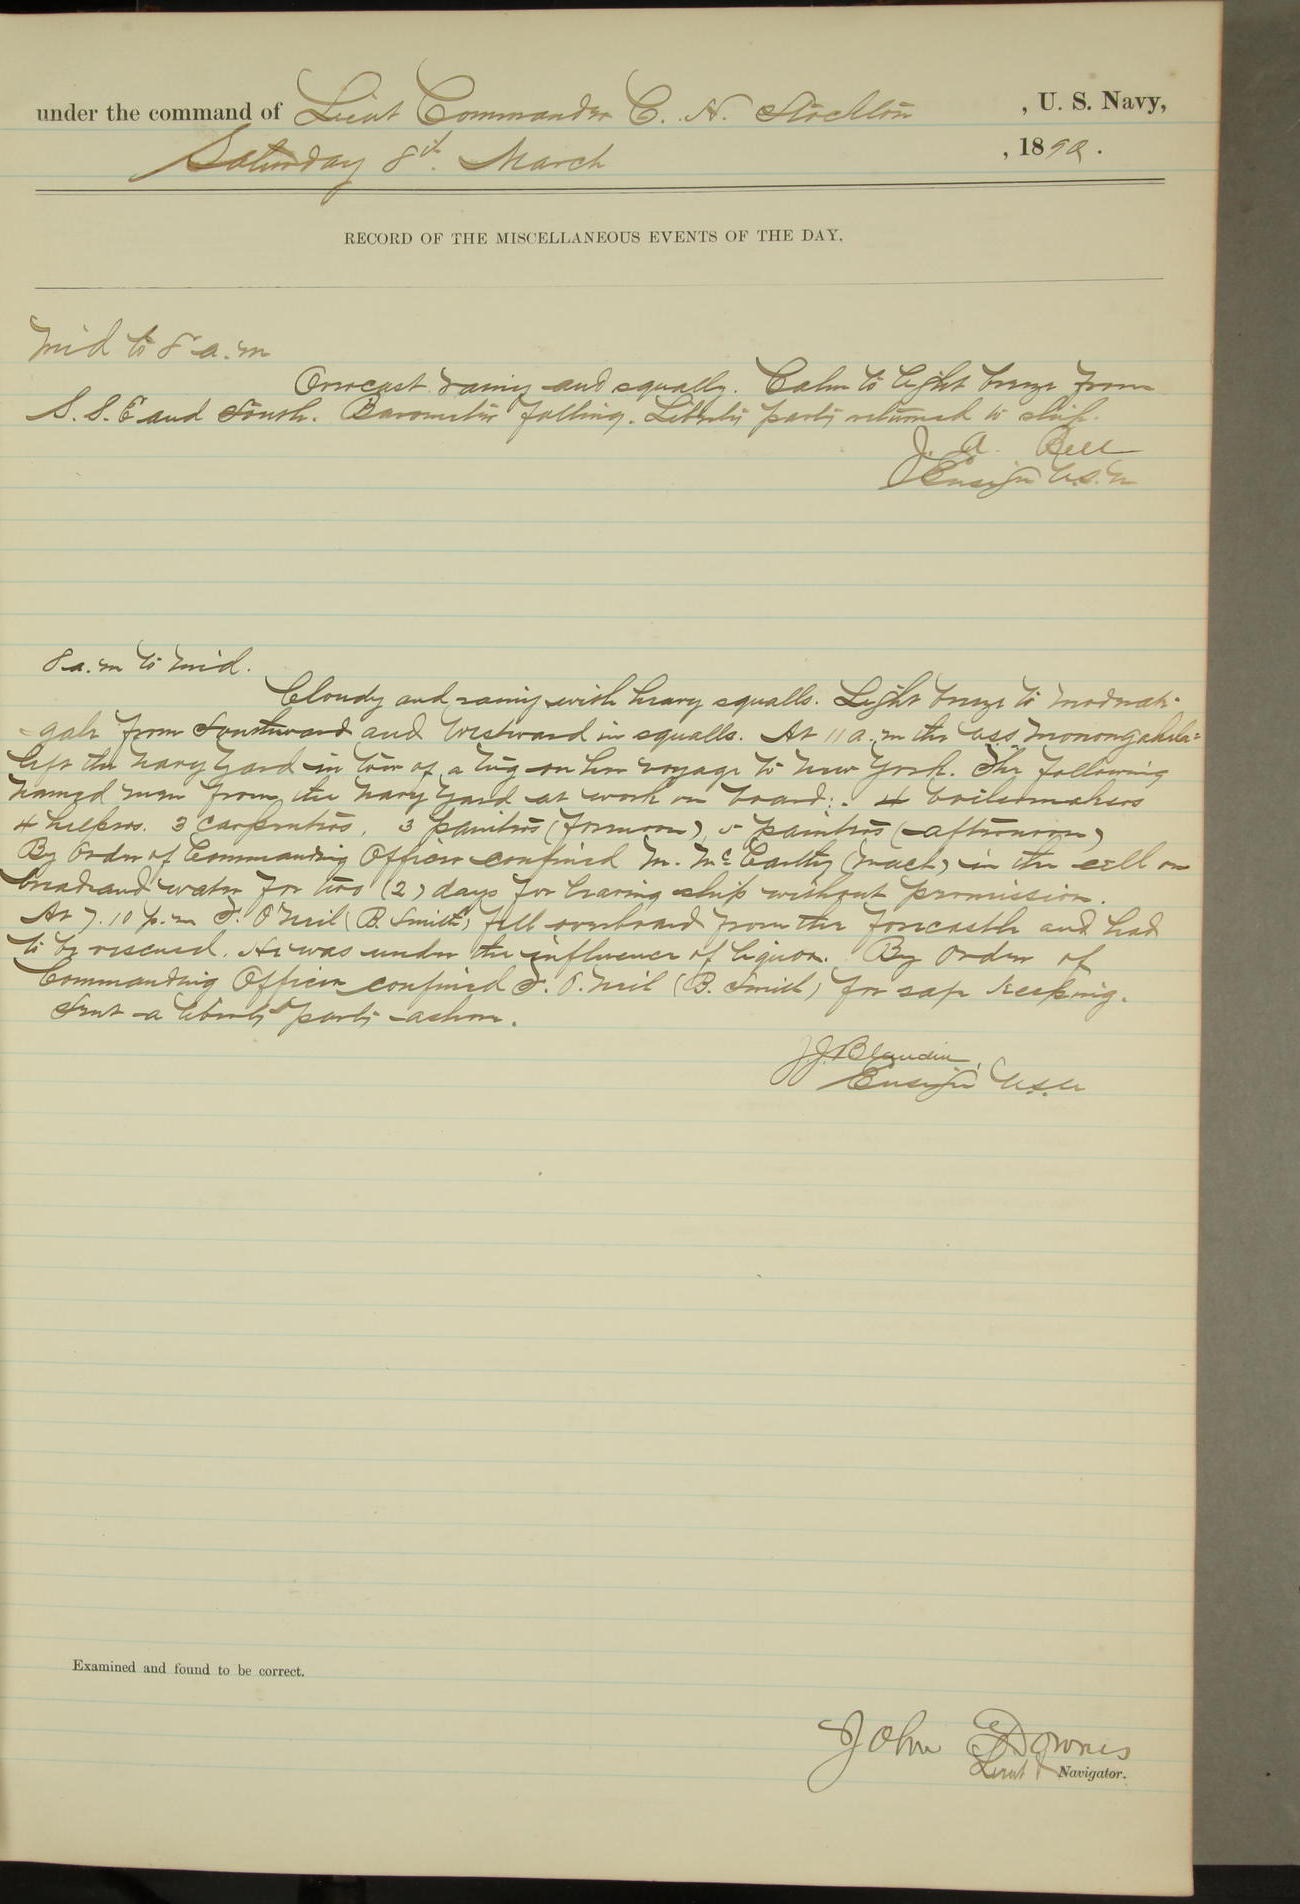 under the command of Lieut Commander C. H. Stockton, U. S. Navy,
Saturday 8th March, 1890.
RECORD OF THE MISCELLANEOUS EVENTS OF THE DAY.
Mid to 8 a.m
Overcast rainy and squally. Calm to light breeze from
S. S. E and South. Barometer falling. Liberty party returned to ship.
J. A. Bell
Ensign U.S.N
8 a.m to Mid.
Cloudy and rainy with heavy squalls. Light breeze to moderate
gale from Southward and Westward in squalls. At 11 a.m the USS Monongahela
left the Navy Yard in tow of a tug on her voyage to New York. The following
named men from the Navy Yard at work on board:- 4 boilermakers
4 helpers. 3 carpenters, 3 painters (forenoon), 5 painters (afternoon)
By Order of Commanding Officer confined M. McCarthy (Mach) in the cell on
bread and water for two (2) days for leaving ship without permission.
At 7.10 p.m F. O'Neil (B. Smith) fell overboard from the forecastle and had
to be rescued. He was under the influence of liquor. By Order of
Commanding Officer confined F. O.Neil (B. Smith) for safe keeping.
Sent a liberty party ashore.
J.J. Blandin,
Ensign U.S.N
Examined and found to be correct.
John Downes
Lieut & Navigator.